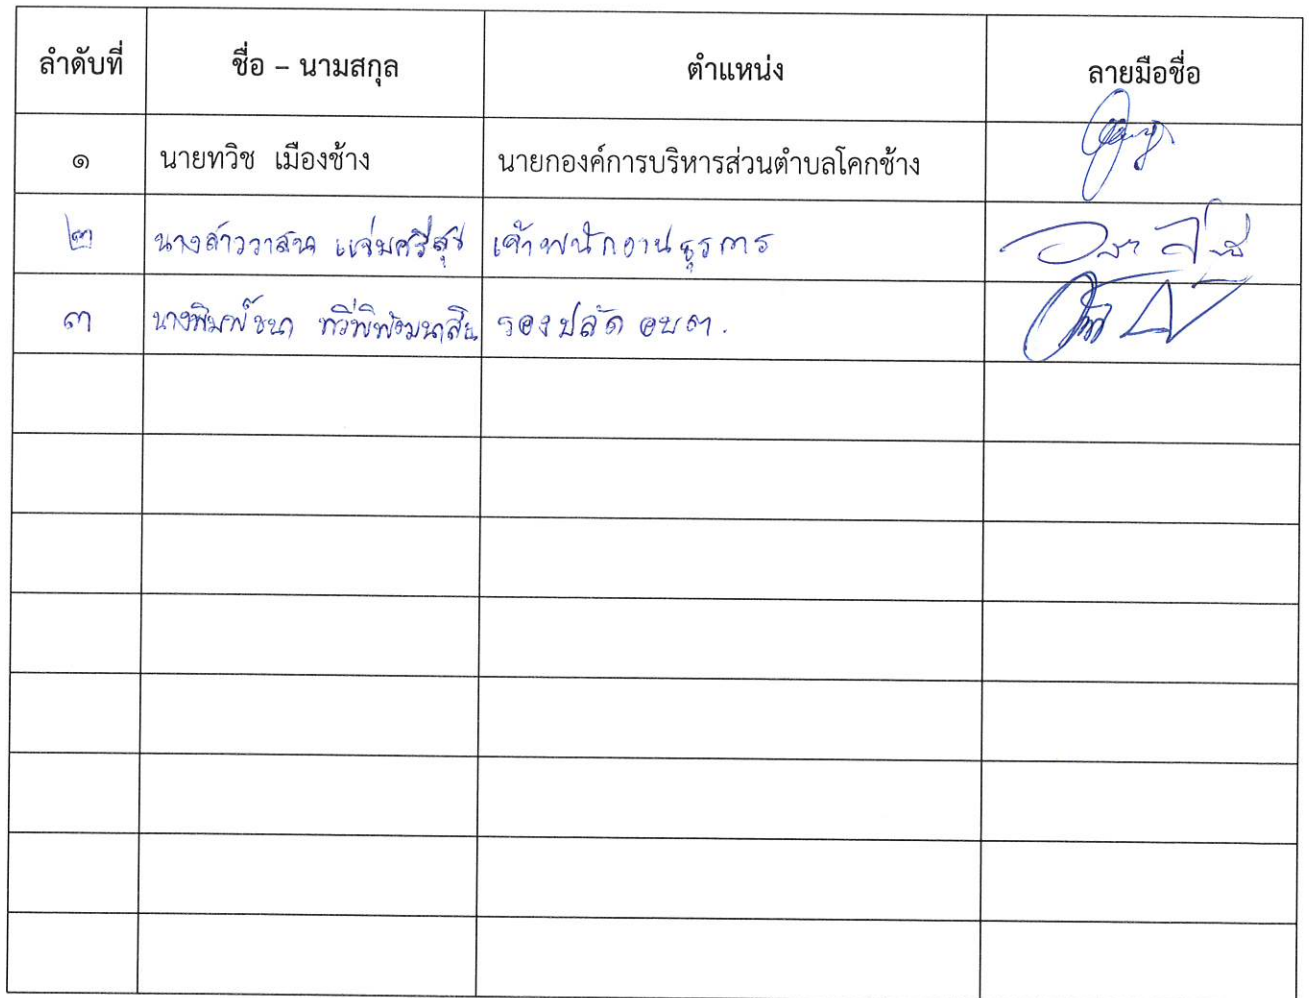 ลำดับที่ ชื่อ – นามสกุล ตำแหน่ง ลายมือชื่อ
๑ นายทวิช เมืองช้าง นายกองค์การบริหารส่วนตำบลโคกช้าง
๒ นางสาววาสนา แจ่มศรีสุข เจ้าพนักงานธุรการ
๓ นางพิมพ์ชนา รองปลัด อบต.